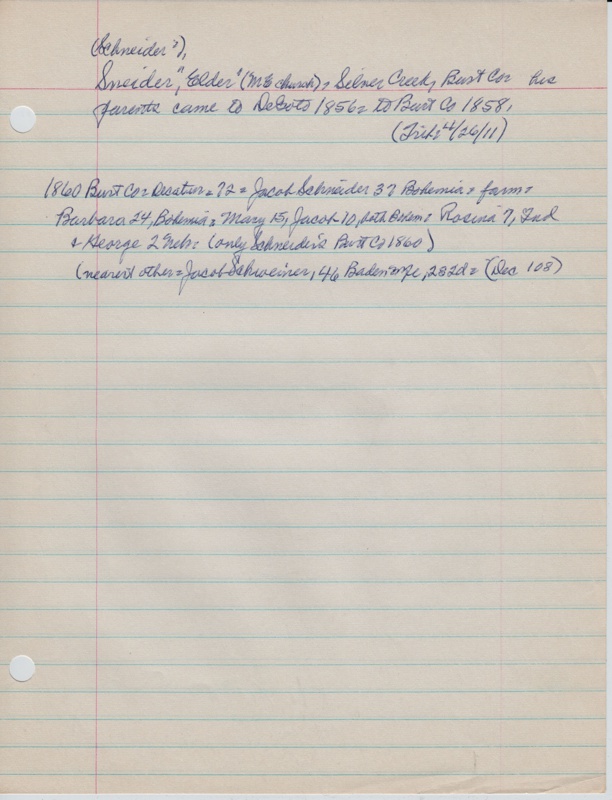 (Schneider?),
Sneider, "Elder" (ME church), Silver Creek, Burt Co= his
parents came to DeSoto 1856= to Burt Co 1858,
4/26/11)
1860 Burt Co= Decatur= 72= Jacob Schneider 37 Bohemia= farm=
Barbara 24, Bohemia= Mary 15, Jacob 10, both Bohem= Rosina 7, Ind
& George 2 Neb= (only Schneider's Burt Co 1860)
(nearest other= Jacob 46 Baden 282d= (Dec 108)